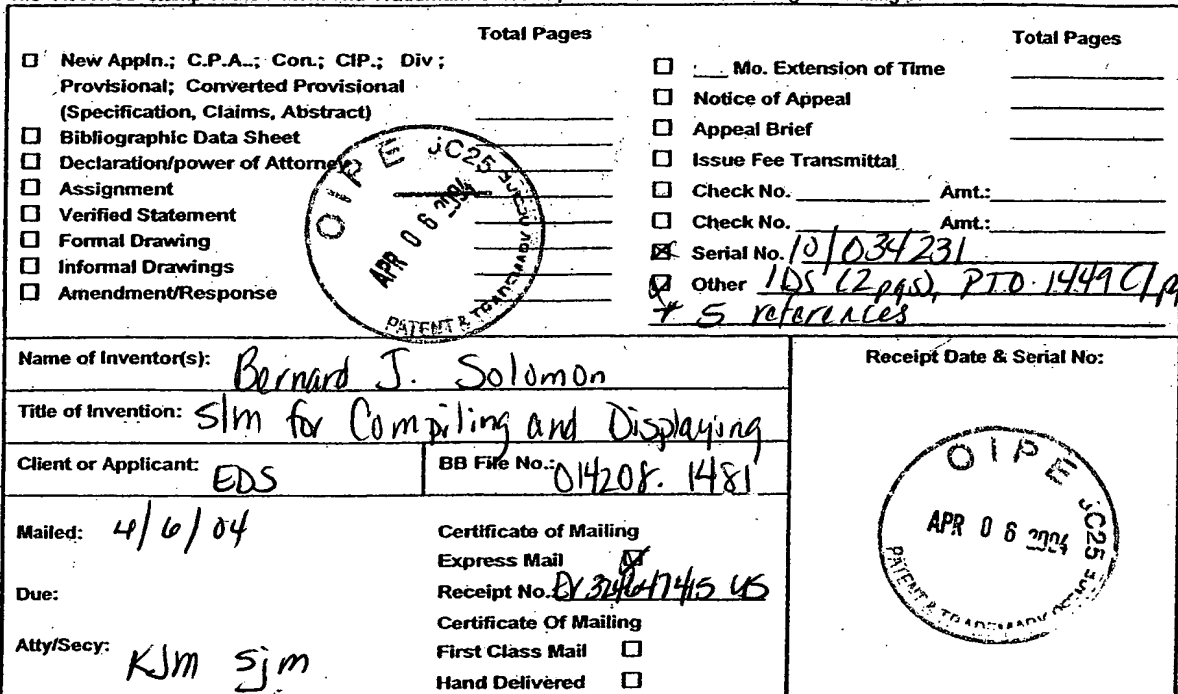 Total Pages
☐ New Appln.; C.P.A..; Con.; CIP.; Div ;
Provisional; Converted Provisional
(Specification, Claims, Abstract)
☐ Bibliographic Data Sheet
☐ Declaration/power of Attorney
☐ Assignment
☐ Verified Statement
☐ Formal Drawing
☐ Informal Drawings
☐ Amendment/Response
OIPE JC25
APR 06 2004
PATENT & TRADEMARK
Total Pages
☐ ___ Mo. Extension of Time
☐ Notice of Appeal
☐ Appeal Brief
☐ Issue Fee Transmittal
☐ Check No. Amt.:
☐ Check No. Amt.:
☒ Serial No. 10/034231
☒ Other IDS (2pgs), PTO-1449
+ 5 references
Name of Inventor(s): Bernard J. Solomon
Title of Invention: S/m for Compiling and Displaying
Client or Applicant: EDS
BB File No.: 014208.1481
Mailed: 4/6/04
Due:
Atty/Secy: KJM sjm
Certificate of Mailing
Express Mail ☒
Receipt No.
Certificate Of Mailing
First Class Mail ☐
Hand Delivered ☐
Receipt Date & Serial No:
OIPE JC25
APR 06 2004
PATENT & TRADEMARK OFFICE